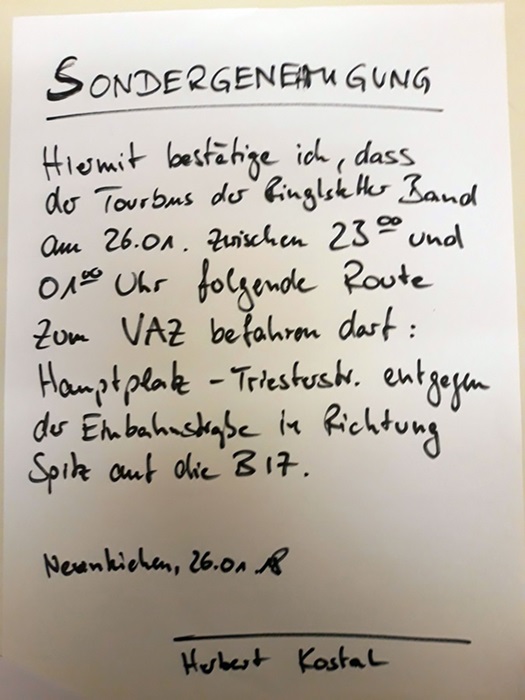 SONDERGENEHMIGUNG
Hiermit bestätige ich, dass
der Tourbus der Ringlstetter Band
am 26.01. zwischen 23⁰⁰ und
01⁰⁰ Uhr folgende Route
zum VAZ befahren darf:
Hauptplatz - Triesterstr. entgegen
der Einbahnstraße in Richtung
Spitz auf die B17.
Neunkirchen, 26.01.18
Herbert Kostal